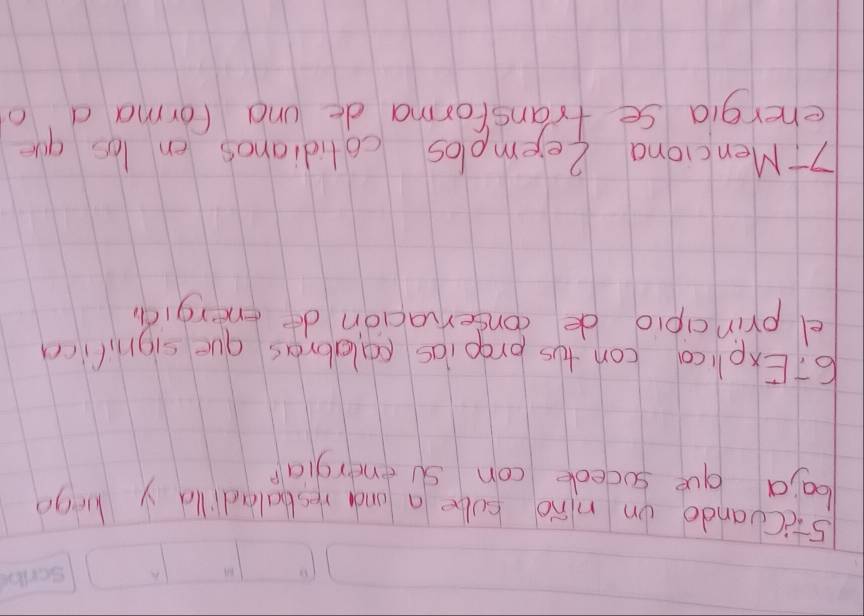 Scribe
D M A
5-¿Cuando un niño sube a una resbaladilla y luego
baja que sucede con su energia?
6-Explica con tus propias palabras que significa
el principio de conservacion de energia.
7-Menciona 2 ejemplos cotidianos en los que
energia se transforma de una forma a